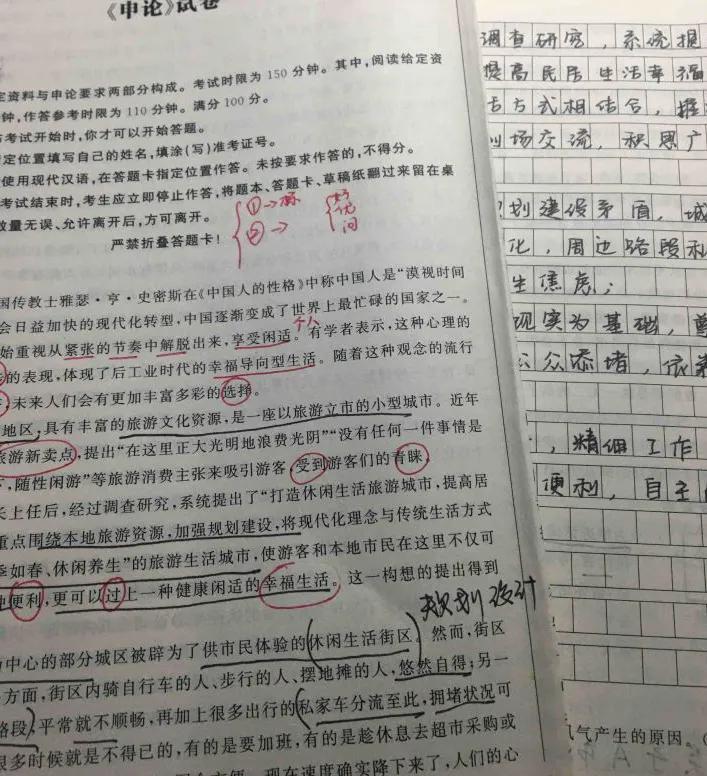 《申论》试卷
定资料与申论要求两部分构成。考试时限为150分钟。其中，阅读给定资
钟，作答参考时限为110分钟。满分100分。
考试开始时，你才可以开始答题。
定位置填写自己的姓名，填涂（写）准考证号。
使用现代汉语，在答题卡指定位置作答。未按要求作答的，不得分。
考试结束时，考生应立即停止作答，将题本、答题卡、草稿纸翻过来留在桌
数量无误、允许离开后，方可离开。
严禁折叠答题卡！
①→
②→
国传教士雅瑟·亨·史密斯在《中国人的性格》中称中国人是“漠视时间
会日益加快的现代化转型，中国逐渐变成了世界上最忙碌的国家之一。
个人
始重视从紧张的节奏中解脱出来，享受闲适。有学者表示，这种心理的
的表现，体现了后工业时代的幸福导向型生活。随着这种观念的流行
，未来人们会有更加丰富多彩的选择。
地区，具有丰富的旅游文化资源，是一座以旅游立市的小型城市。近年
旅游新卖点，提出“在这里正大光明地浪费光阴”“没有任何一件事情是
，随性闲游”等旅游消费主张来吸引游客，受到游客们的青睐。
长上任后，经过调查研究，系统提出了“打造休闲生活旅游城市，提高居
重点围绕本地旅游资源，加强规划建设，将现代化理念与传统生活方式
季如春、休闲养生”的旅游生活城市，使游客和本地市民在这里不仅可
便利，更可以过上一种健康闲适的幸福生活。这一构想的提出得到
规划设计
中心的部分城区被辟为了供市民体验的休闲生活街区。然而，街区
方面，街区内骑自行车的人、步行的人、摆地摊的人，悠然自得；另一
路段，平常就不顺畅，再加上很多出行的私家车分流至此，拥堵状况可
很多时候就是不得已的，有的是要加班，有的是趁休息去超市采购或
现在速度确实降下来了，人们的心
调查研究，系统提
提高民居生活幸福
方式相结合，
场交流，积思广
划建设矛盾，城
化，周边路段私
生焦虑；
现实为基础，尊
公众添堵，依
，精细工作
便利，自主
气产生的原因。（